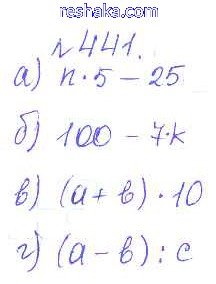 reshaka.com
№441.
а) n·5 – 25
б) 100 – 7·k
в) (а + в) · 10
г) (а – в) : с